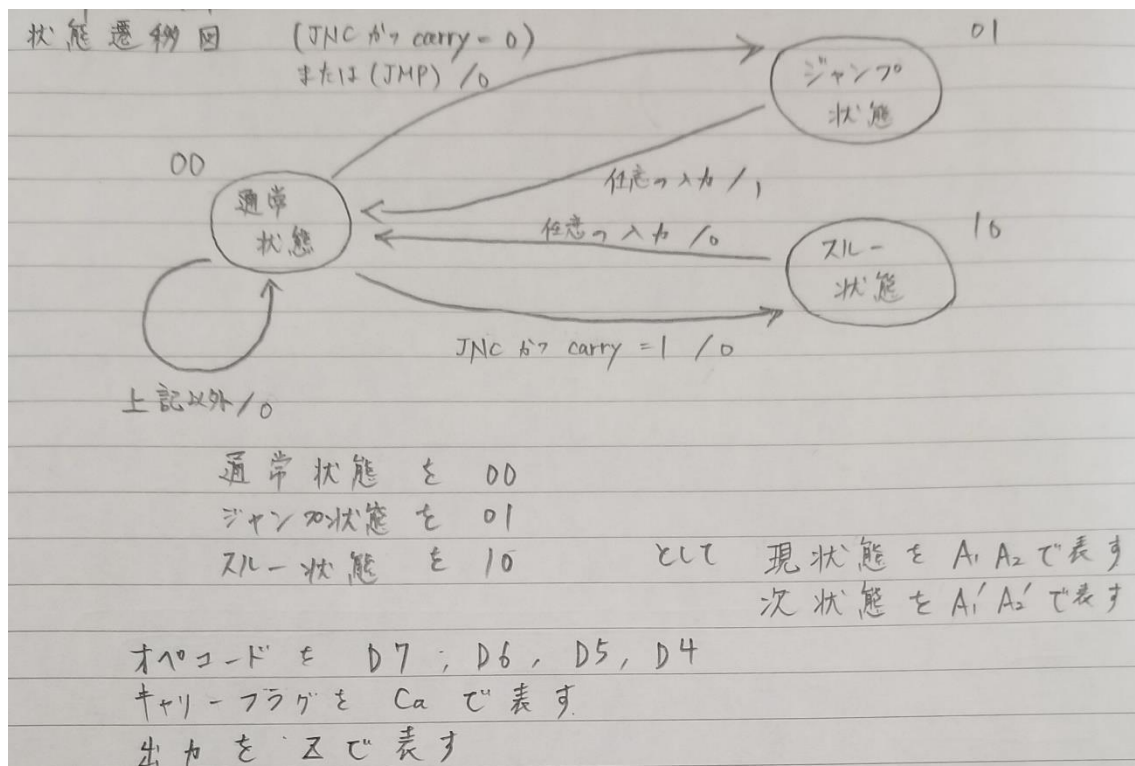 状態遷移図 (JNC かつ carry = 0)
または (JMP) /0
01
ジャンプ
状態
00
通常
状態
任意の入力 / 1
任意の入力 /0
10
スルー
状態
JNC かつ carry = 1 /0
上記以外 /0
通常状態 を 00
ジャンプ状態 を 01
スルー状態 を 10 として 現状態を A1 A2 で表す
次状態を A1' A2' で表す
オペコードを D7 , D6 , D5 , D4
キャリーフラグを Ca で表す
出力を Z で表す